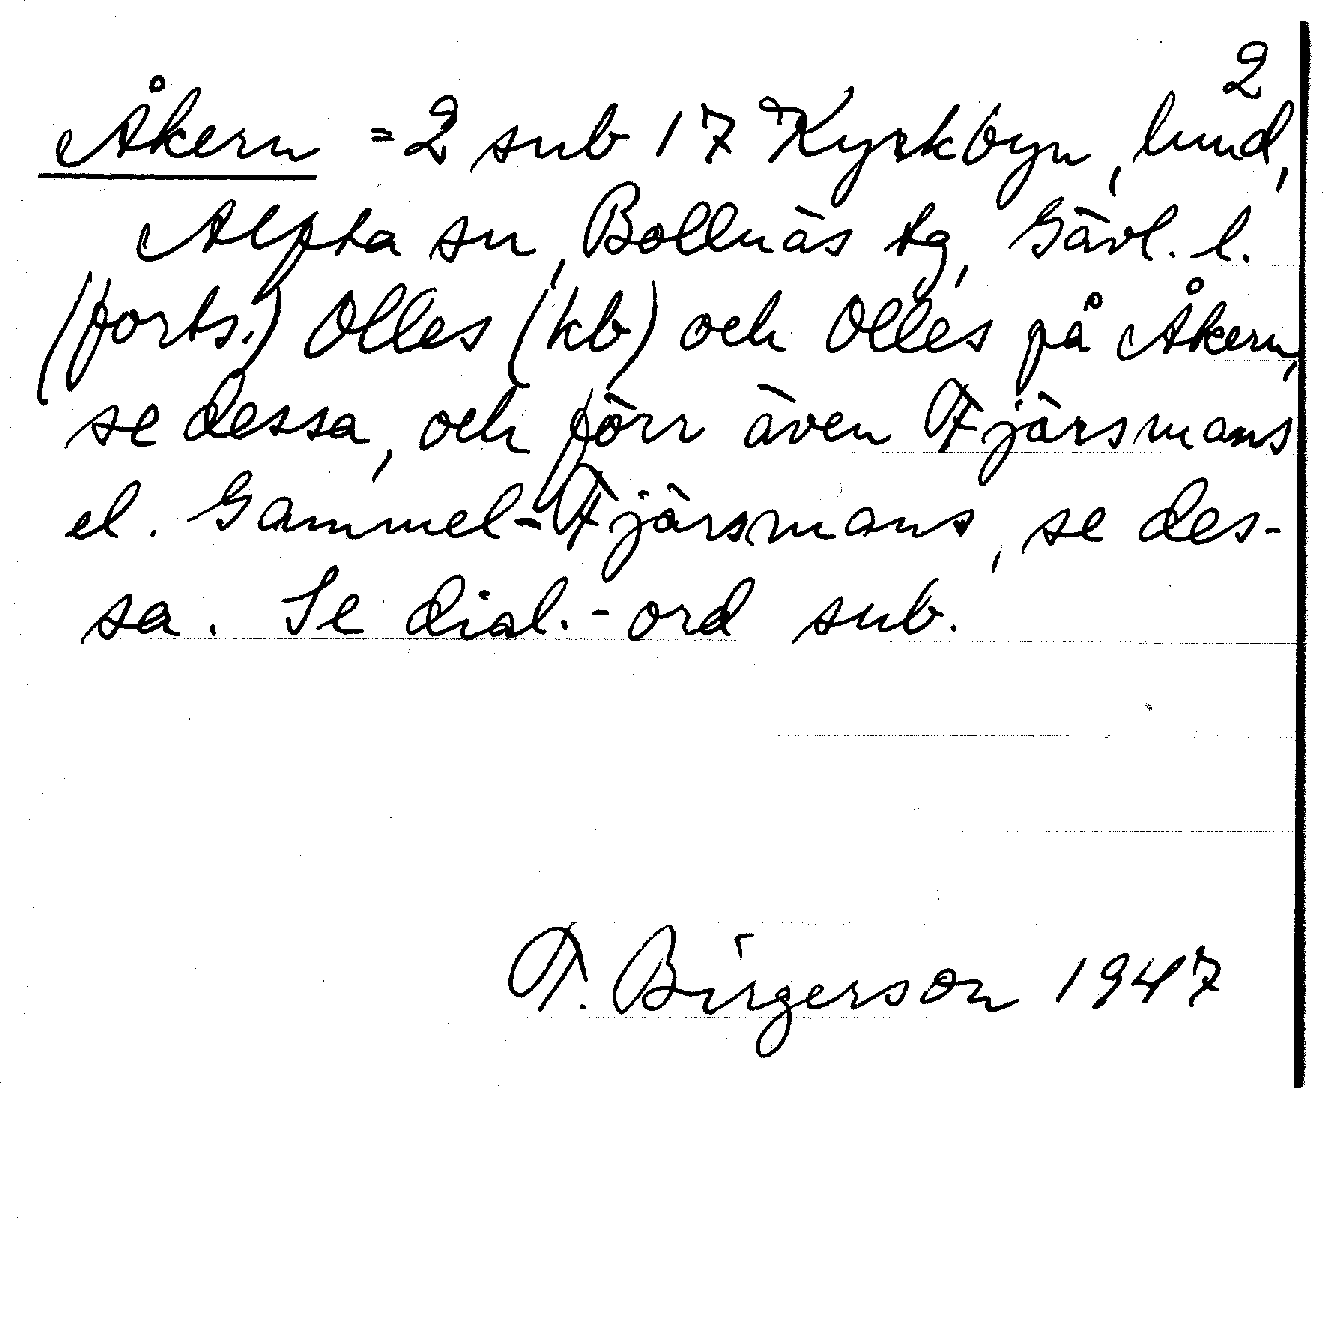 2
Åkern = 2 sub 17 Kyrkbyn, lund,
Alfta sn, Bollnäs tg, Gävl. l.
(forts.) Olles (kb) och Olles på Åkern,
se dessa, och förr även Fjärsmans
el. Gammel-Fjärsmans, se des-
sa. Se dial.-ord sub.
F. Birgerson 1947